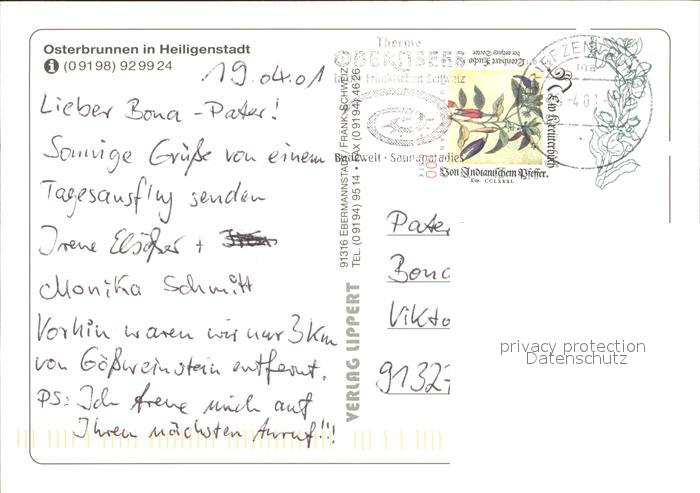 Osterbrunnen in Heiligenstadt
(09198) 929924
19.04.01
Lieber Bona-Pater!
Sonnige Grüße von einem
Tagesausflug senden
Irene Elsäßer +
Monika Schmitt
Vorhin waren wir nur 3 Km
von Gößweinstein entfernt.
PS: Ich freue mich auf
Ihren nächsten Anruf!!!
VERLAG LIPPERT
91316 EBERMANNSTADT / FRÄNK. SCHWEIZ
TEL. (09194) 9514 · FAX (09194) 4626
Therme
OBERNSEES
Fränkischen Schweiz
Badewelt · Saunaparadies
Leonhart Fuchs
New Kreüterbůch
100
Von Indianischem Pfeffer.
Cap. CCLXXXI.
BRIEFZENTRUM
Pater
Bona
Vikto
91327
privacy protection
Datenschutz